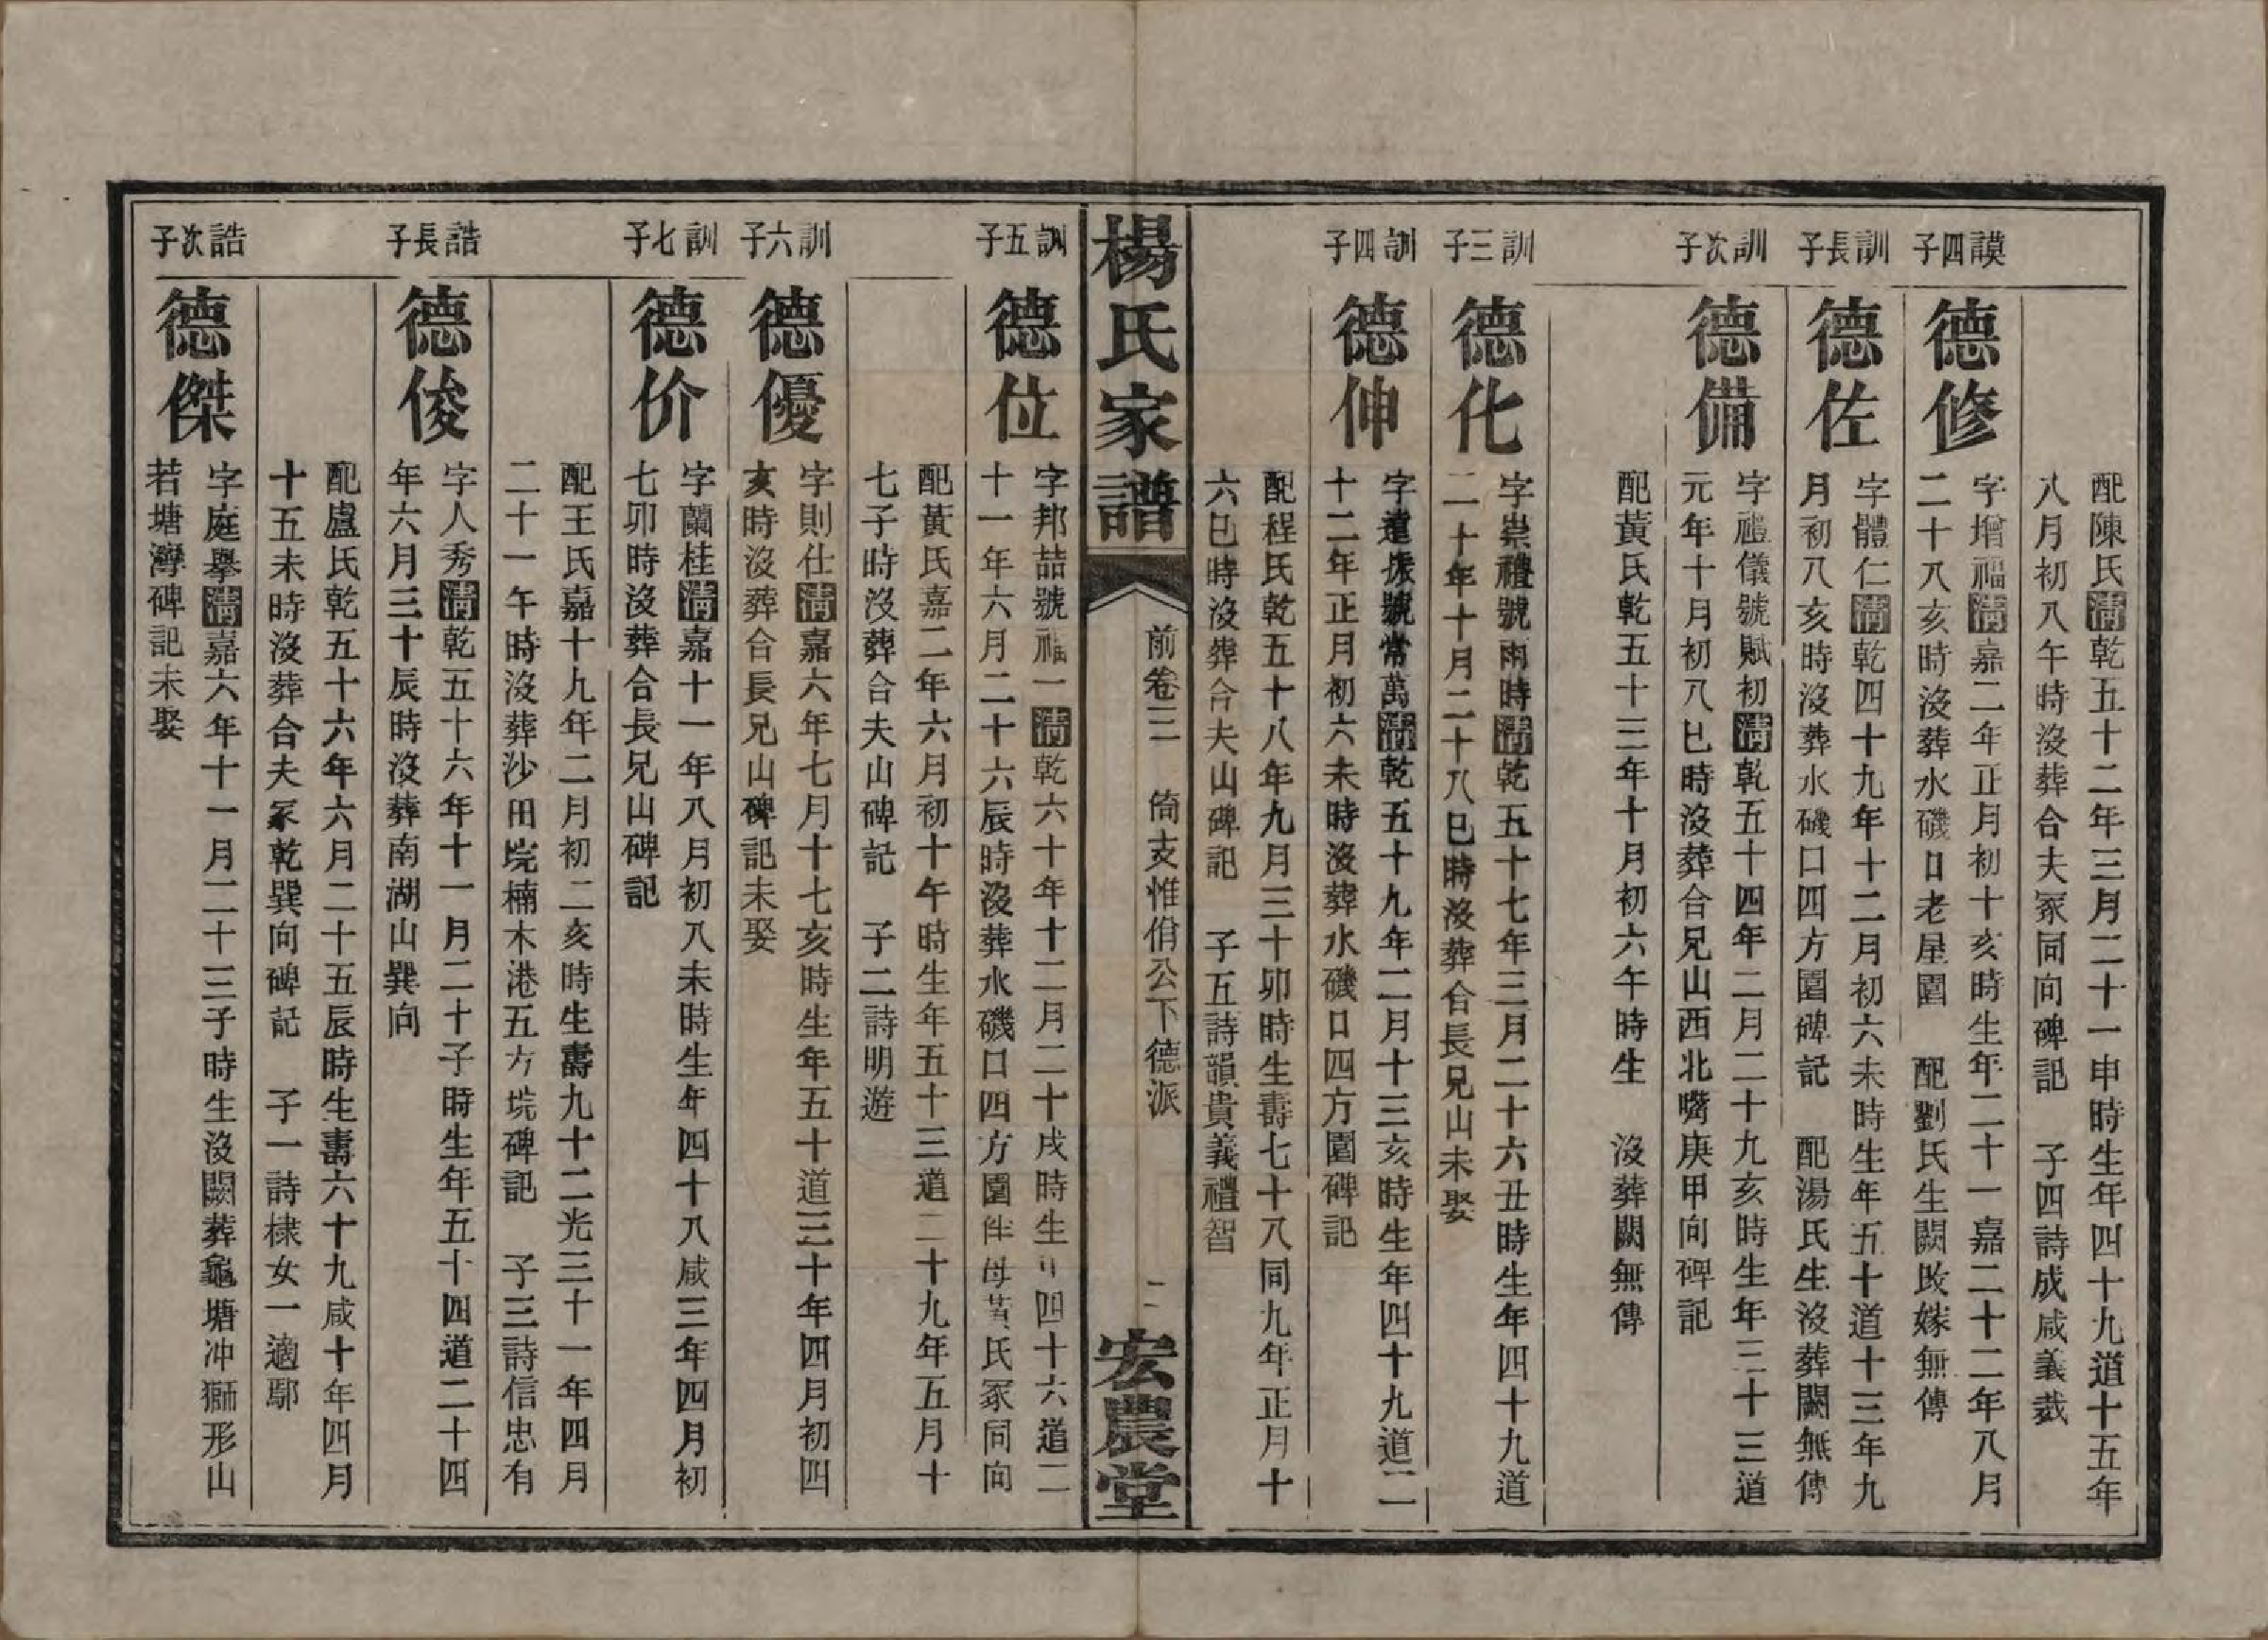 配陳氏清乾五十二年三月二十一申時生年四十九道十五年
八月初八午時沒葬合夫冢同向碑記　子四詩成咸義裁
謨四子
德修
字增福清嘉二年正月初十亥時生年二十一嘉二十二年八月
二十八亥時沒葬水磯口老屋圍　配劉氏生闕改嫁無傳
訓長子
德佐
字體仁清乾四十九年十二月初六未時生年五十道十三年九
月初八亥時沒葬水磯口四方圍碑記　配湯氏生沒葬闕無傳
訓次子
德備
字禮儀號賦初清乾五十四年二月二十九亥時生年三十三道
元年十月初八巳時沒葬合兄山西北嘴庚甲向碑記
配黃氏乾五十三年十月初六午時生　沒葬闕無傳
訓三子
德化
字崇禮號雨時清乾五十七年三月二十六丑時生年四十九道
二十年十月二十八巳時沒葬合長兄山未娶
訓四子
德伸
字遣振號常萬清乾五十九年二月十三亥時生年四十九道二
十二年正月初六未時沒葬水磯口四方圍碑記
配程氏乾五十八年九月三十卯時生壽七十八同九年正月十
六巳時沒葬合夫山碑記　子五詩韻貴義禮智
楊氏家譜
前卷三　倚支惟俏公下德派
二
宏農堂
訓五子
德位
字邦喆號福一清乾六十年十二月二十戌時生年四十六道二
十一年六月二十六辰時沒葬水磯口四方圍伴母黃氏冢同向
配黃氏嘉二年六月初十午時生年五十三道二十九年五月十
七子時沒葬合夫山碑記　子二詩明遊
訓六子
德優
字則仕清嘉六年七月十七亥時生年五十道三十年四月初四
亥時沒葬合長兄山碑記未娶
訓七子
德价
字蘭桂清嘉十一年八月初八未時生年四十八咸三年四月初
七卯時沒葬合長兄山碑記
配王氏嘉十九年二月初二亥時生壽九十二光三十一年四月
二十一午時沒葬沙田垸楠木港五方垸碑記　子三詩信忠有
誥長子
德俊
字人秀清乾五十六年十一月二十子時生年五十四道二十四
年六月三十辰時沒葬南湖山巽向
配盧氏乾五十六年六月二十五辰時生壽六十九咸十年四月
十五未時沒葬合夫冢乾巽向碑記　子一詩棣女一適鄢
誥次子
德傑
字庭舉清嘉六年十一月二十三子時生沒闕葬龜塘冲獅形山
若塘灣碑記未娶